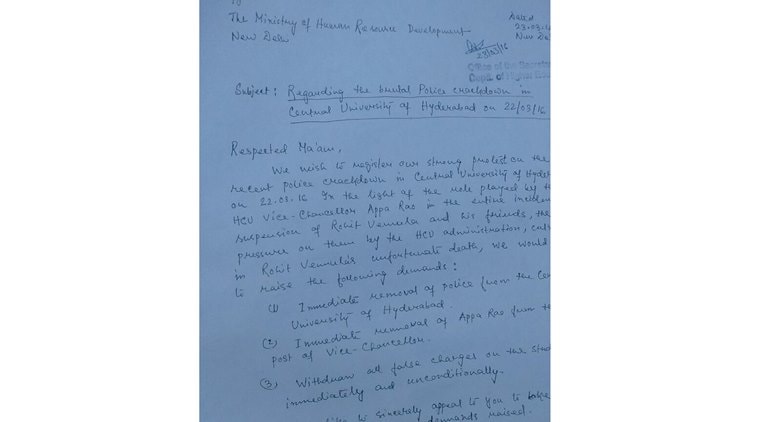 To
The Ministry of Human Resource Development
New Delhi
Dated
23.03.16
New De
23/03/16
Office of the Secreta
Deptt. of Higher Edu
Subject: Regarding the brutal Police crackdown in
Central University of Hyderabad on 22/03/16
Respected Ma'am,
We wish to register our strong protest on the
recent police crackdown in Central University of Hyder
on 22.03.16 In the light of the role played by th
HCU Vice-Chancellor Appa Rao in the entire inciden
suspension of Rohit Vemula and his friends, the
pressure on them by the HCU administration, cul
in Rohit Vemula's unfortunate death, we would
to raise the following demands:
(1) Immediate removal of police from the Cen
University of Hyderabad
(2) Immediate removal of Appa Rao from th
post of Vice-Chancellor.
(3) Withdraw all false charges on the stud
immediately and unconditionally.
to sincerely appeal to you to
demands raised.